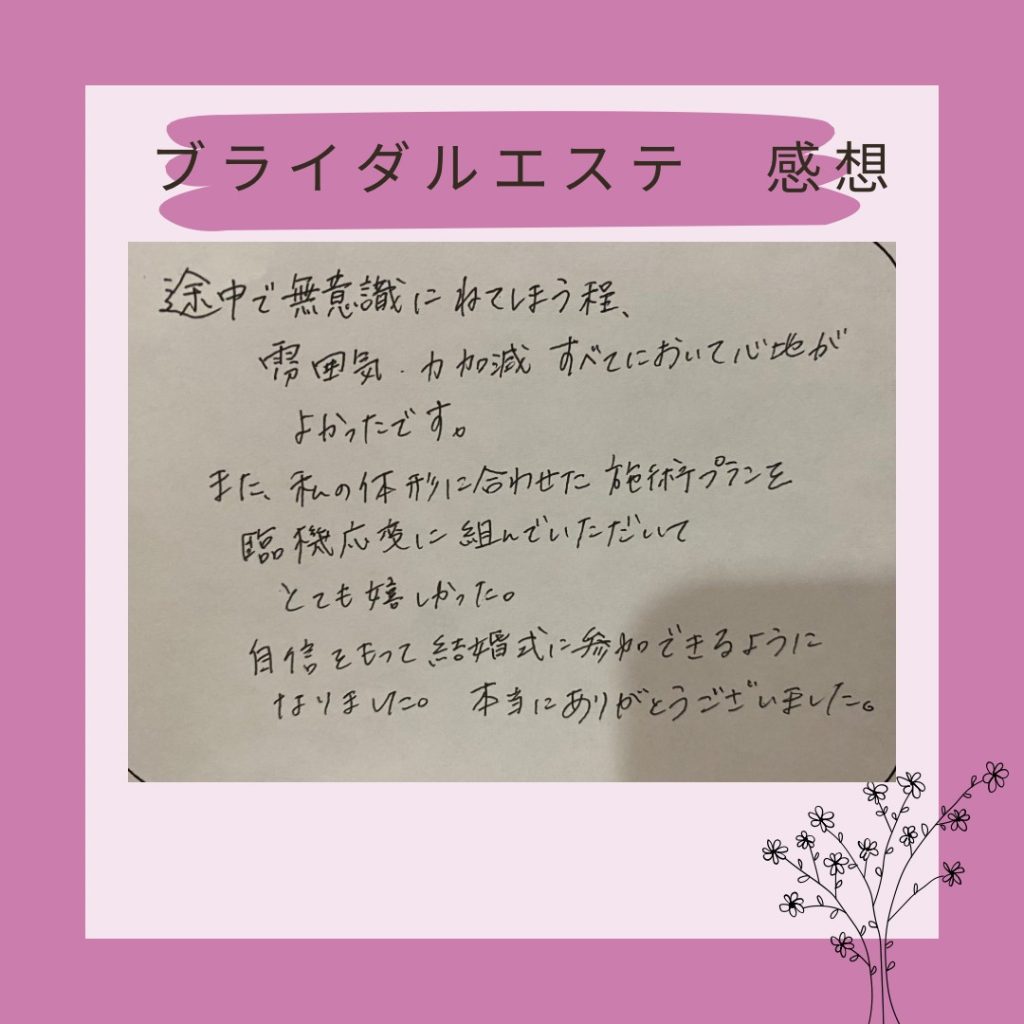 ブライダルエステ　感想
途中で無意識にねてしまう程、
雰囲気・力加減 すべてにおいて心地が
よかったです。
また、私の体形に合わせた 施術プランを
臨機応変に組んでいただいて
とても嬉しかった。
自信をもって結婚式に参加できるように
なりました。 本当にありがとうございました。